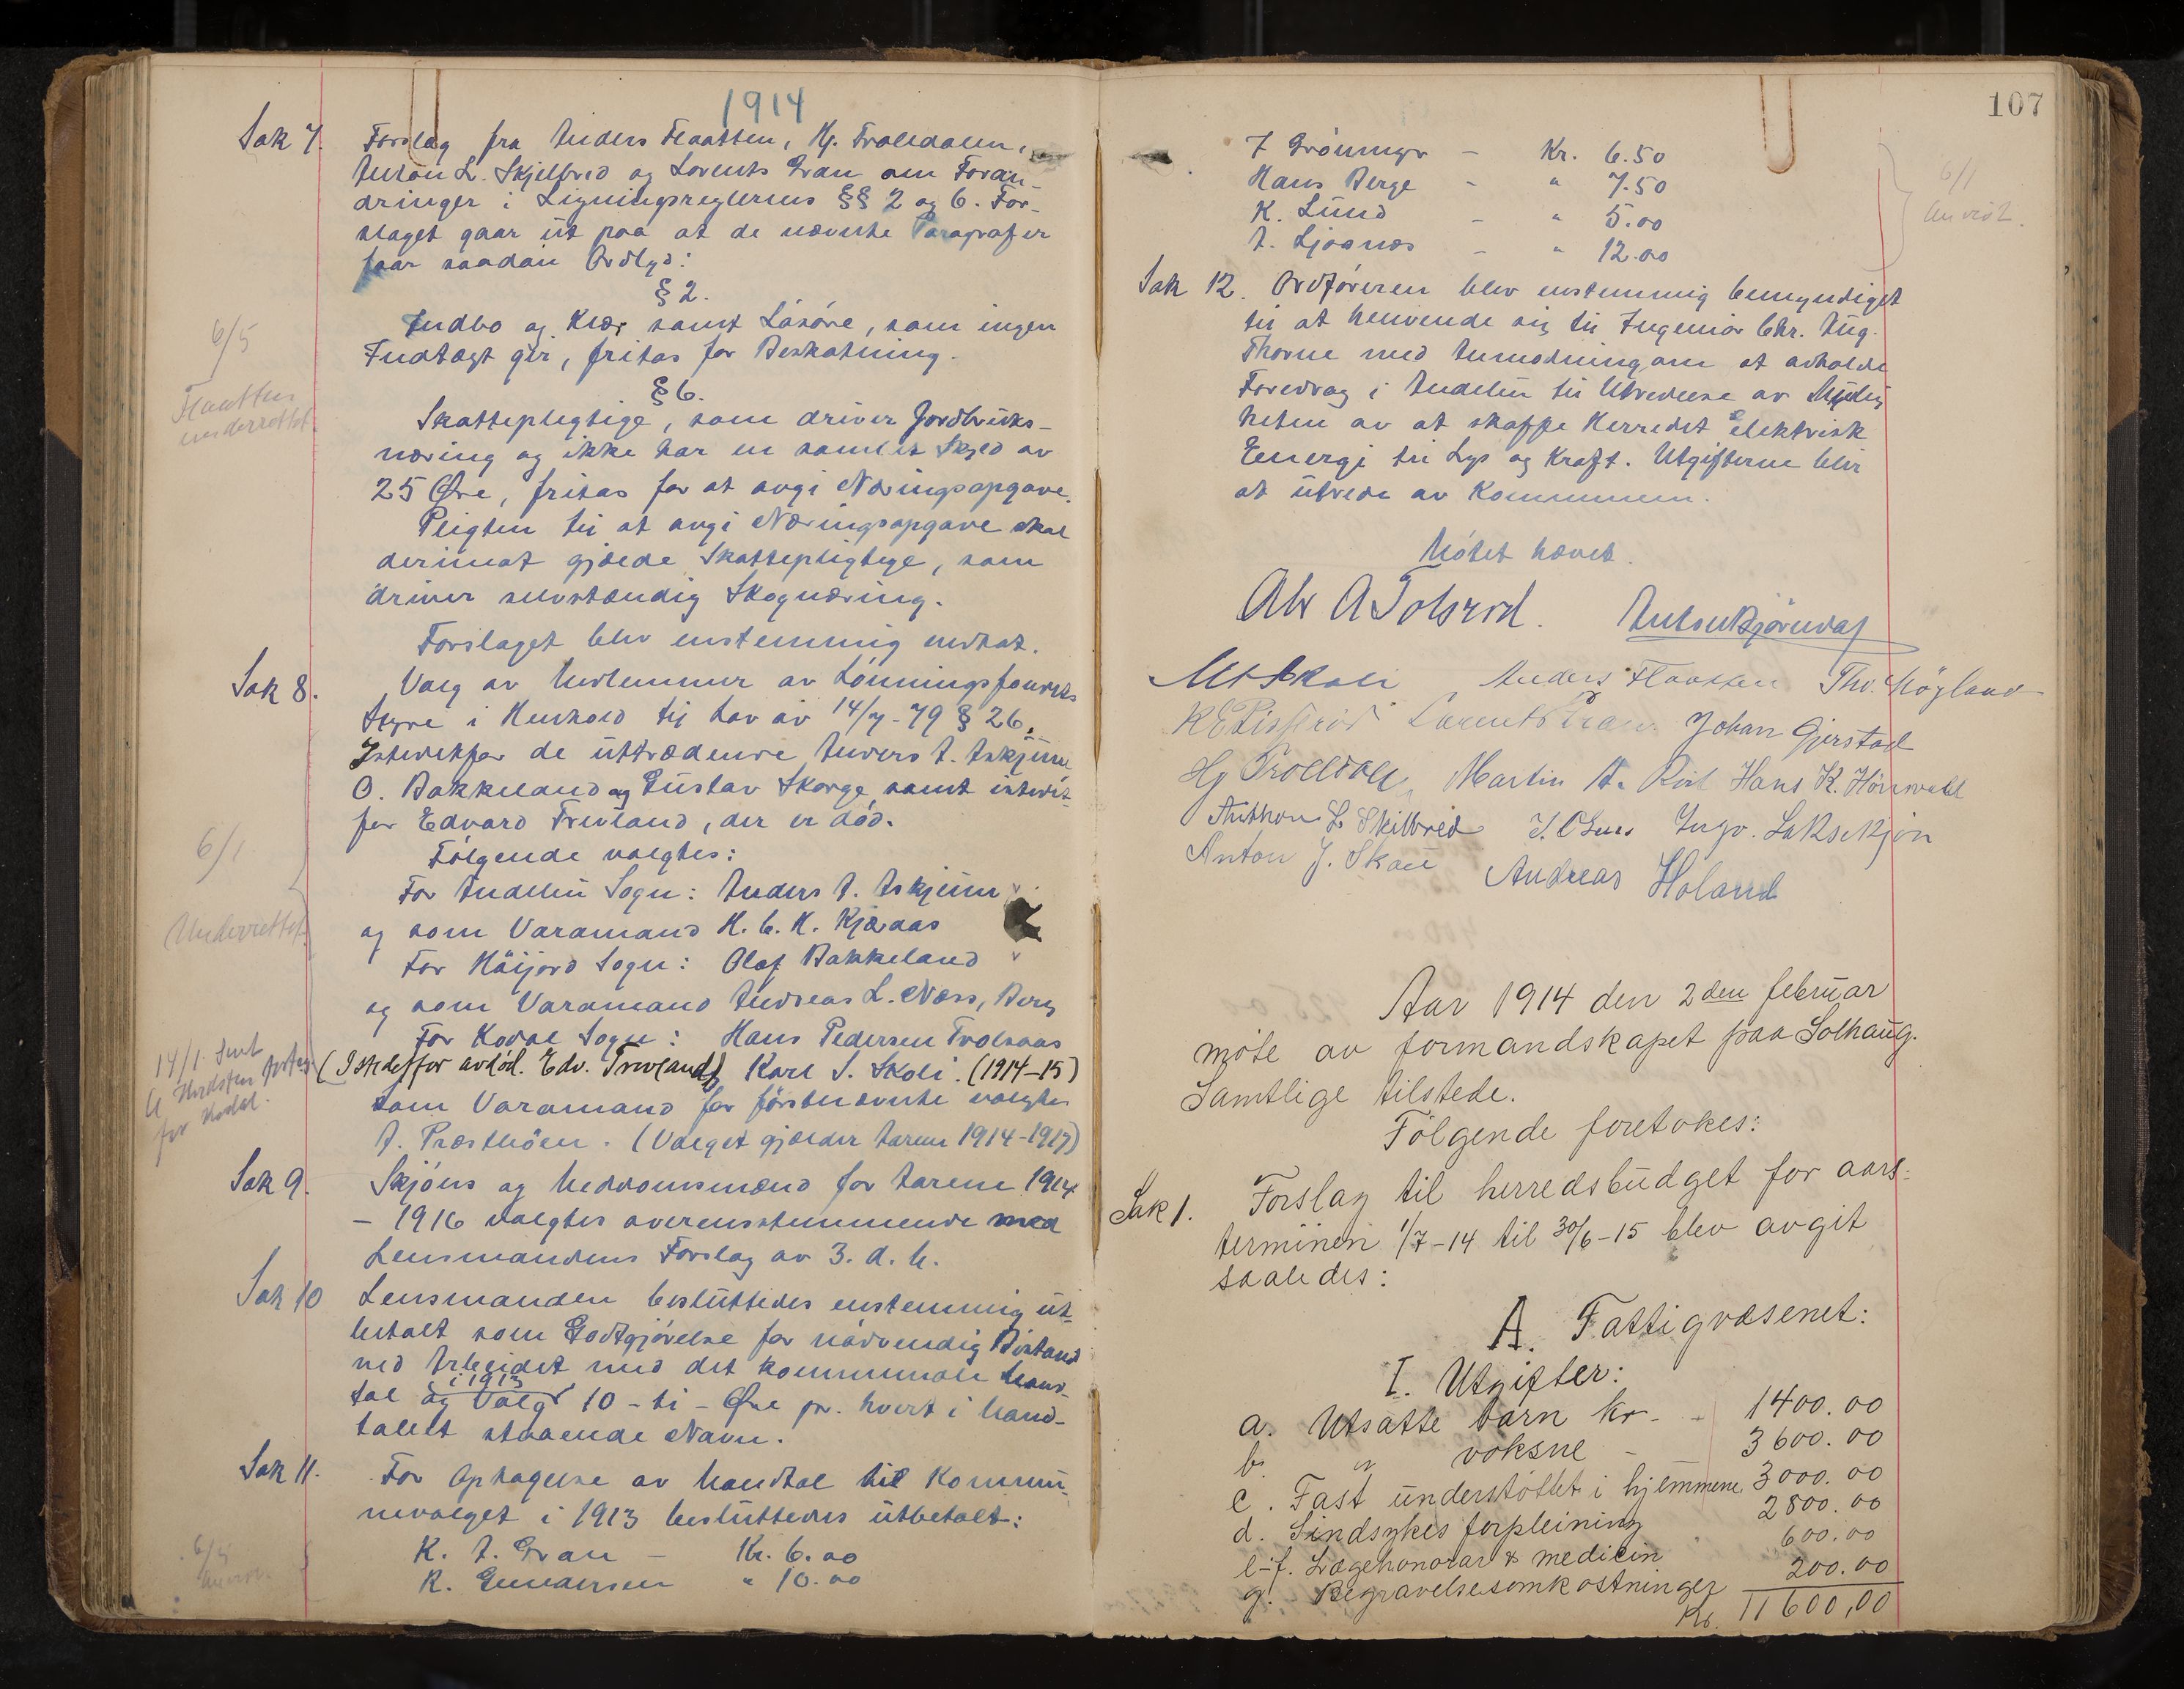 1914
Sak 7. Forslag fra Anders Flaatten, Hj. Trolldalen,
Anton L. Skjelbred og Lorents Gran om Foran-
dringer i Ligningsreglernes §§ 2 og 6. For-
slaget gaar ut paa at de nævnte Paragrafer
faar saadan Ordlyd:
§ 2.
Indbo og Klær samt Løsøre, som ingen
Indtægt gir, fritas for Beskatning.
6/5
Flaatten
underrettet.
§ 6.
Skattepligtige, som driver Jordbruks-
næring og ikke har en samlet Skyld av
25 Øre, fritas for at avgi Næringsopgave.
Pligten til at avgi Næringsopgave skal
derimot gjælde Skattepligtige, som
driver selvstændig Skognæring.
Forslaget blev enstemmig vedtat.
Sak 8. Valg av Medlemmer av Lønningsfondets
Styre i Henhold til Lov av 14/7-79 § 26.
Istedetfor de uttrædende Anders A. Askjem
O. Bakkeland og Gustav Skorge samt istedet-
for Edvard Trevland, der er død.
Følgende valgtes:
6/1
Underrettet.
For Andebu Sogn: Anders A. Askjem
og som Varamand H. C. H. Kjæraas
For Høijord Sogn: Olaf Bakkeland
og som Varamand Andreas L. Næss, Berg
For Kodal Sogn: Hans Pedersen Trolsaas
14/1 Sent
for Kodal.
(Istedetfor avdød. Edv. Trevland) Karl S. Skoli. (1914-15)
Som Varamand for førstnævnte valgtes
A. Præsthøen. (Valget gjælder Aarene 1914-1917)
Sak 9. Skjøns og Meddomsmænd for Aarene 1914
- 1916 valgtes overensstemmende med
Lensmandens Forslag av 3. d. M.
Sak 10 Lensmanden besluttedes enstemmig ut-
betalt som Godtgjørelse for nødvendig Bistand
ved Arbeidet med det kommunale Mand-
i 1913
tal og Valg 10 - ti - Øre pr. hvert i Mand-
tallet staaende Navn.
Sak 11. For Optagelse av Mandtal til Kommu-
nevalget i 1913 besluttedes utbetalt:
6/5
K. A. Gran - Kr. 6.00
R. Gundersen " 10.00
107
J Grønmyr - Kr. 6.50
Hans Berge - " 7.50
K. Lund - " 5.00
A. Ljosnæs - " 12.00
6/1
Anvist.
Sak 12. Ordføreren blev enstemmig bemyndiget
til at henvende sig til Ingeniør Chr. Aug.
Thorne med Anmodning om at avholde
Foredrag i Andebu til Utredelse av Mulig
heten av at skaffe Herredet elektrisk
Energi til Lys og Kraft. Utgifterne blir
at utrede av Kommunen.
Møtet hævet.
Abr A Tolsrød. Anton Bjørndal
M Skoli Anders Flaatten Thv. Møyland
Lorents Gran. Johan Gjerstad
Hj Trolldal, Martin A. Rød Hans K. Hønsvald
Anthon L Skilbred Ingv. Laksekjøn
Anton J. Skau Andreas Holand
Aar 1914 den 2den februar
møte av formandskapet paa Solhaug.
Samtlige tilstede.
Følgende foretokes:
Sak 1. Forslag til herredsbudget for aars-
terminen 1/7-14 til 30/6-15 blev avgit
saaledes:
A. Fattigvæsenet:
I. Utgifter:
a. Utsatte barn kr - - 1400.00
b. " voksne - 3600.00
c. Fast understøttet i hjemmene 3000.00
d. Sindsykes forpleining 2800.00
e-f. Lægehonorar & medicin 600.00
g. Begravelsesomkostninger 200.00
Kr. 11600,00